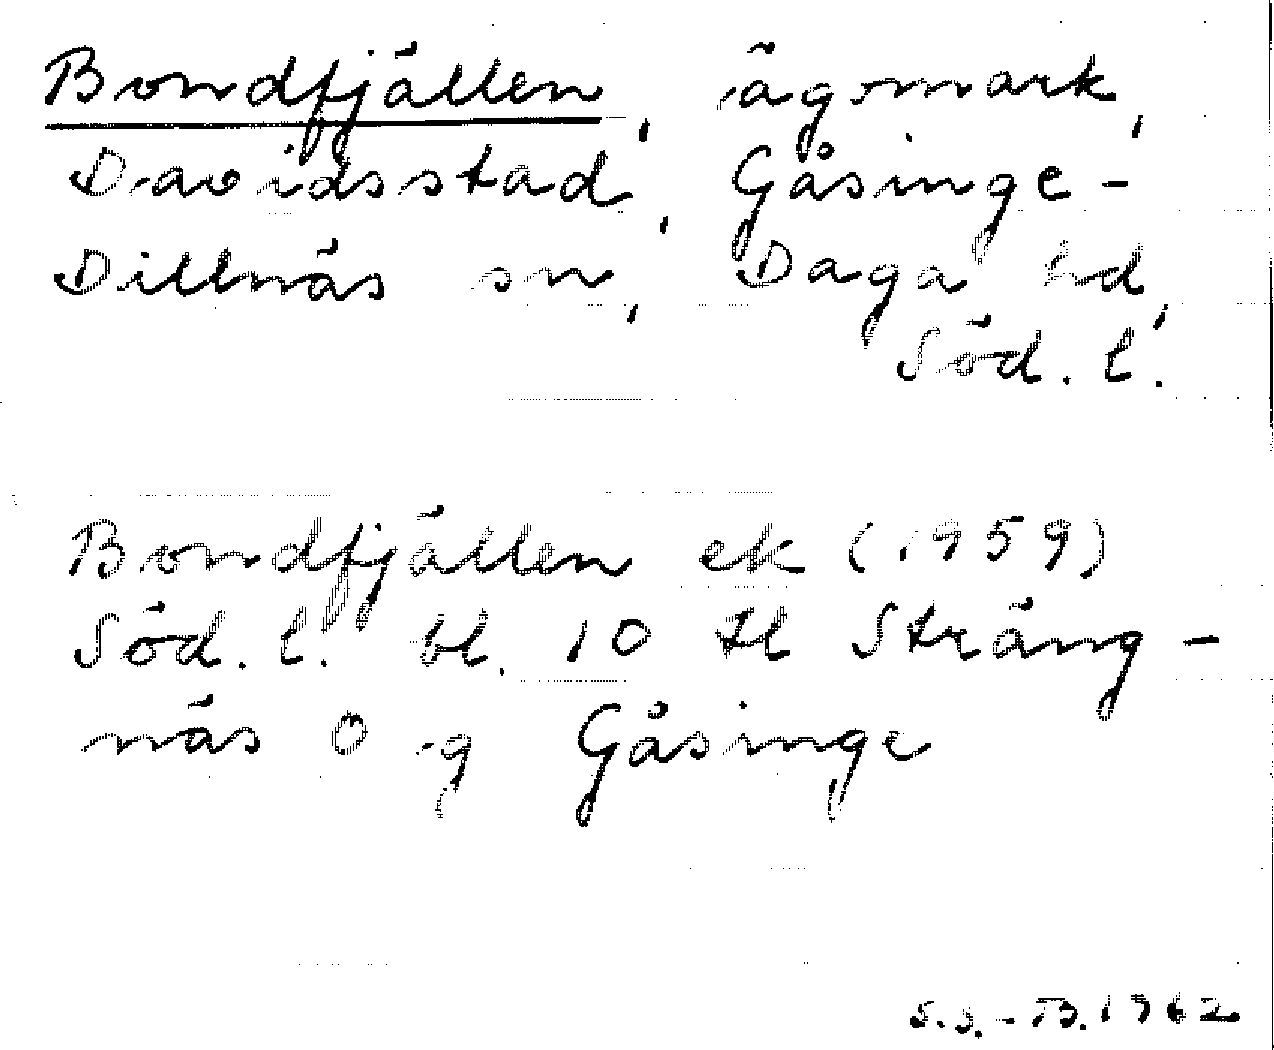 Bondfjällen, ägomark,
Davidsstad, Gåsinge-
Dillnäs sn, Daga hd,
Söd. l.
Bondfjällen ek (1959)
Söd. l. bl. 10 tl Sträng-
näs O g Gåsinge
S.S.-B. 1962